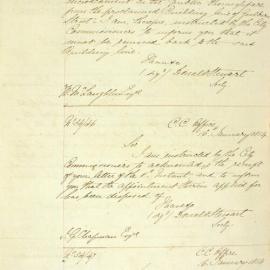 encroachment on the public thoroughfare
from the proclaimed Building line of
Street. I am, however, instructed by the City
Commissioners to inform you that it
must be removed back to the said
Building line.
I have &c
(sgd) Donald Stewart
Secty
W. McLaughlin Esqre
C. C. Office
January
Sir
I am instructed by the City
Commissioners to acknowledge the receipt
of your letter of the instant and to inform
you that the appointment therein applied for
has been disposed of
I have &c
(sgd) Donald Stewart
Secty
Chapman Esqre
C. C. Office
January